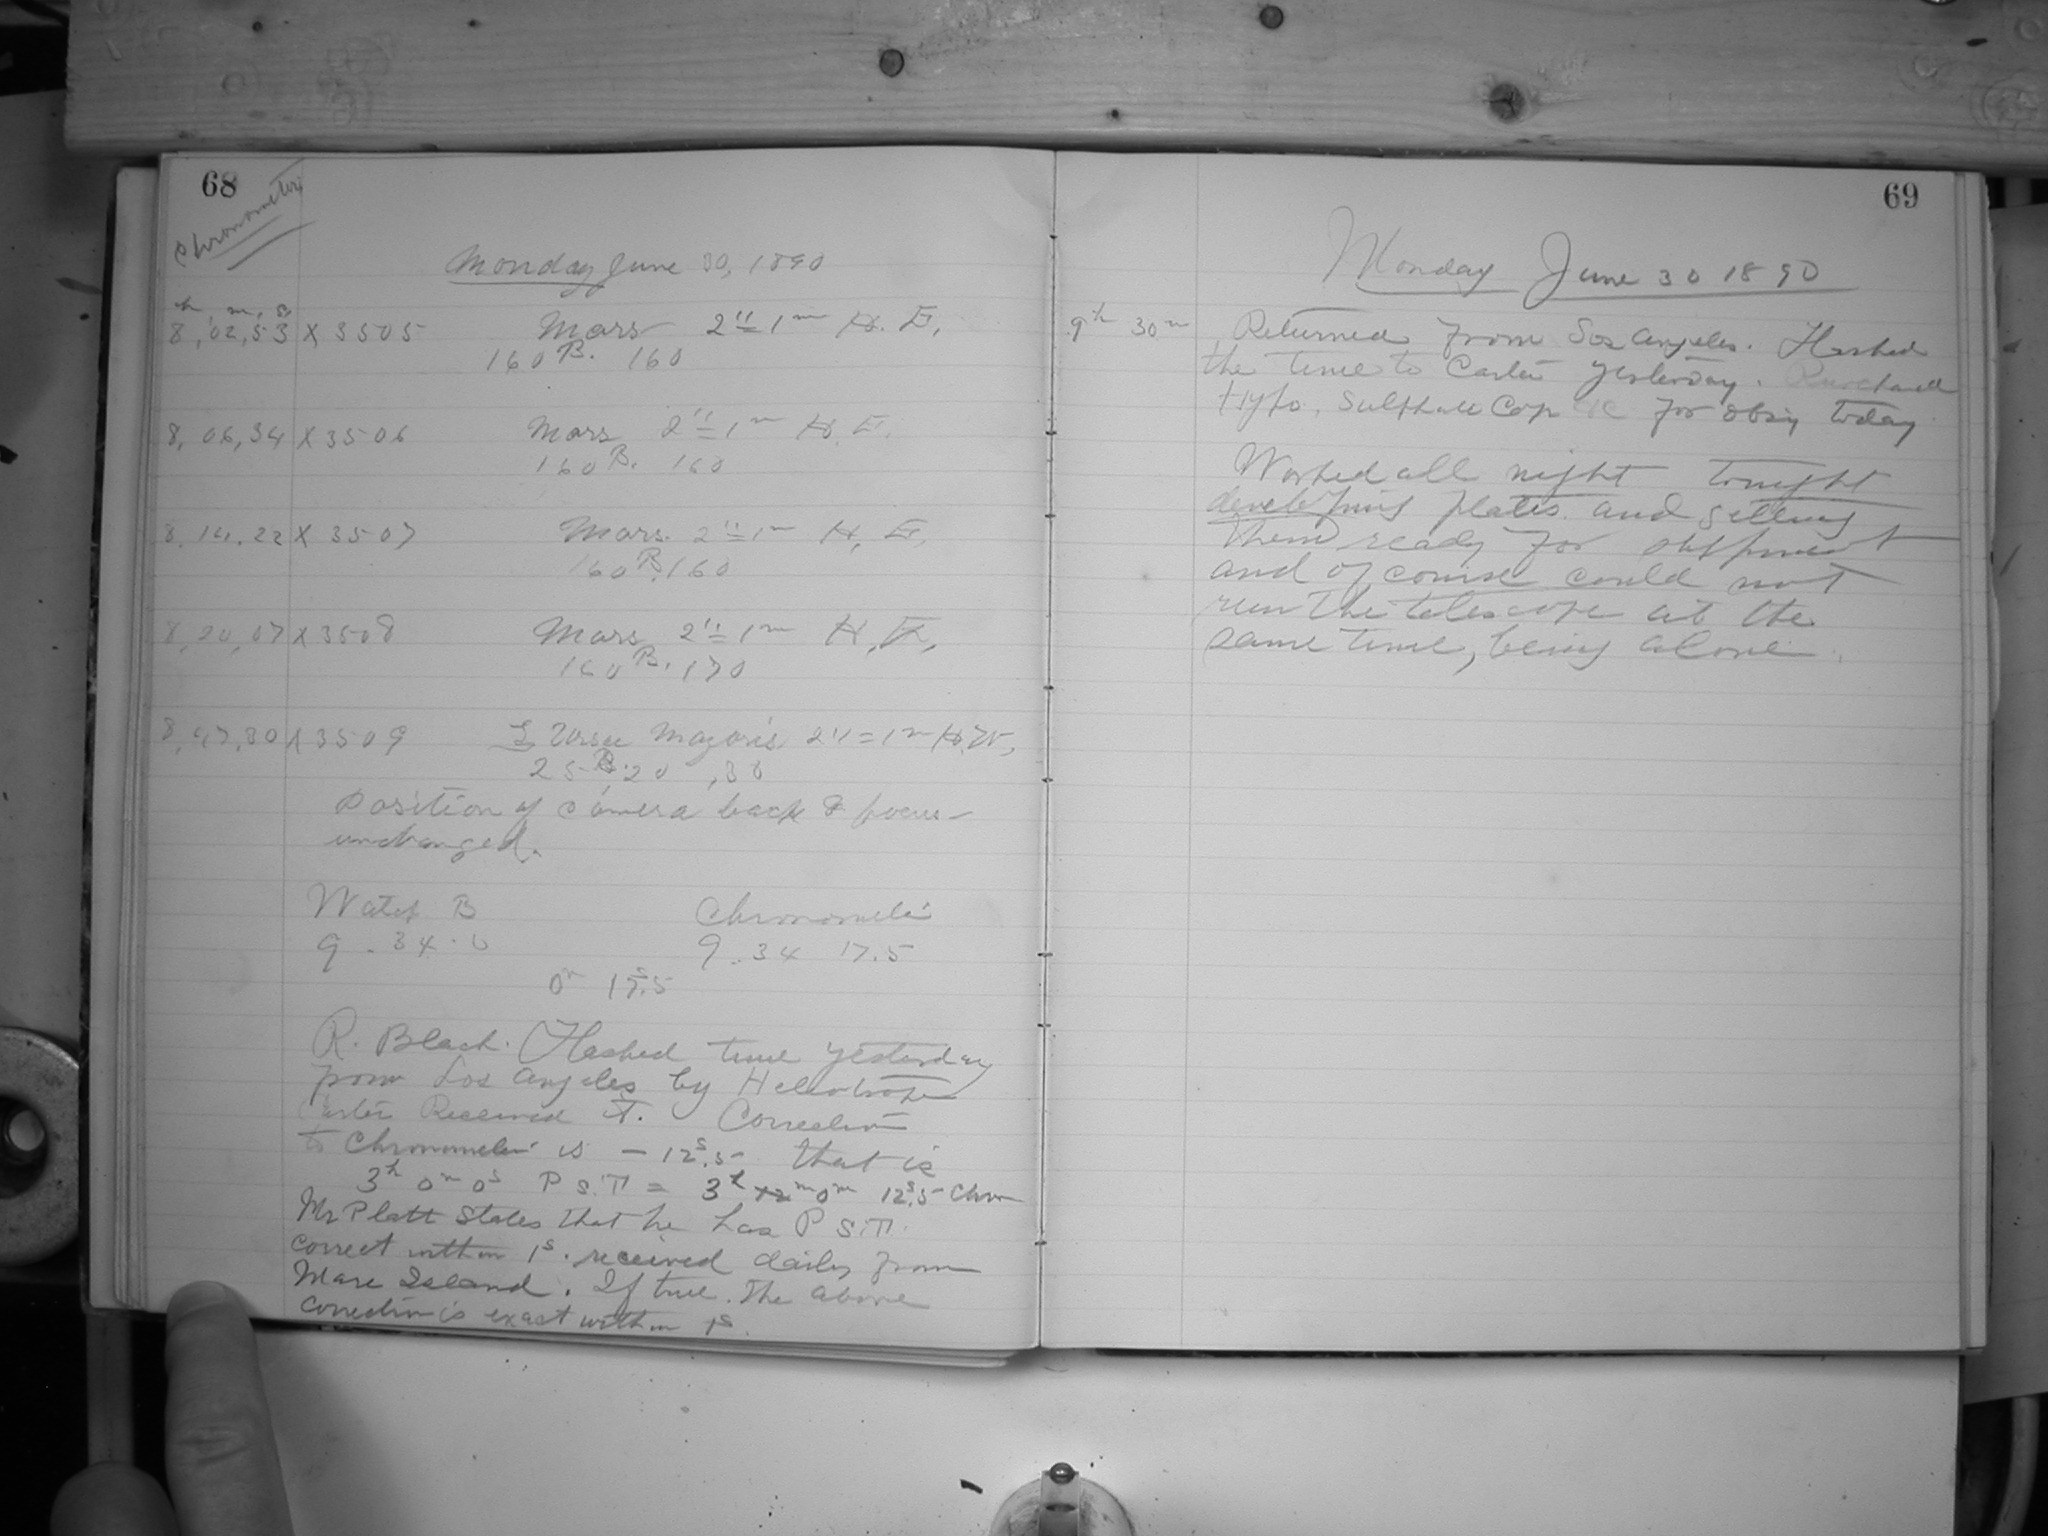 68
Chronometer
Monday June 30, 1890
h. m. s.
8, 02, 53 X 3505 Mars 2"=1m H. E,
160 B. 160
8, 06, 34 X 3506 Mars 2"=1m H. E.
160 B. 160
8, 14, 22 X 3507 Mars. 2"=1m H, E,
160 B. 160
8, 20, 07 X 3508 Mars 2"=1m H, E,
160 B. 170
8, 47, 30 X 3509 ξ Ursae Majoris 2"=1m H. W,
25 B. 20 , 30
Position of camera back & focus
unchanged.
Watch B Chronometer
9 . 34 . 0 9 . 34 17.5
0m 17s.5
R. Black. Flashed time yesterday
from Los Angeles by Heliotrope
Carter Received it. Correction
to Chronometer is - 12s.5 that is
3h 0m 0s P.S.T. = 3h 0m 12s.5 Chron
Mr Platt States that he has P.S.T.
correct within 1s. received daily from
Mare Island. If true. The above
correction is exact within 1s.
69
Monday June 30 1890
9h 30m Returned from Los Angeles. Flashed
the time to Carter yesterday. Purchased
Hypo, Sulphate Cop &c for obsy today
Worked all night tonight
developing plates and getting
them ready for shipment
and of course could not
run the telescope at the
same time, being alone.